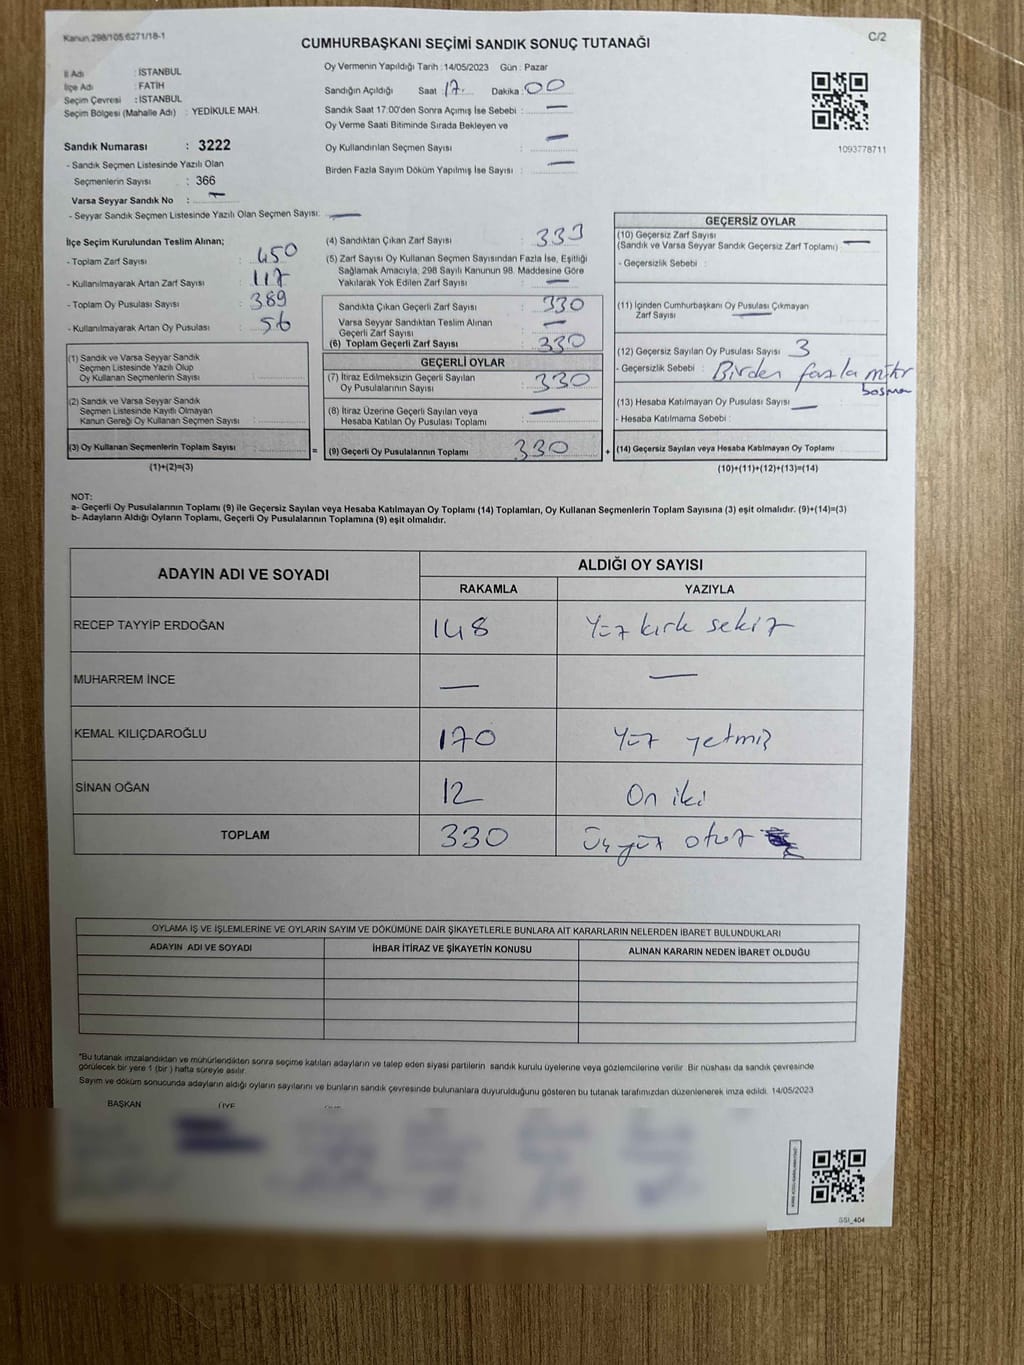 Kanun.298/105:6271/18-1
C/2
CUMHURBAŞKANI SEÇİMİ SANDIK SONUÇ TUTANAĞI
İl Adı : İSTANBUL
İlçe Adı : FATİH
Seçim Çevresi : İSTANBUL
Seçim Bölgesi (Mahalle Adı) : YEDİKULE MAH.
Sandık Numarası : 3222
- Sandık Seçmen Listesinde Yazılı Olan
Seçmenlerin Sayısı : 366
Varsa Seyyar Sandık No : —
- Seyyar Sandık Seçmen Listesinde Yazılı Olan Seçmen Sayısı: —
Oy Vermenin Yapıldığı Tarih :14/05/2023 Gün : Pazar
Sandığın Açıldığı Saat : 17 Dakika : 00
Sandık Saat 17:00'den Sonra Açımış İse Sebebi : —
Oy Verme Saati Bitiminde Sırada Bekleyen ve
Oy Kullandırılan Seçmen Sayısı : —
Birden Fazla Sayım Döküm Yapılmış İse Sayısı : —
1093778711
İlçe Seçim Kurulundan Teslim Alınan;
- Toplam Zarf Sayısı : 450
- Kullanılmayarak Artan Zarf Sayısı : 117
- Toplam Oy Pusulası Sayısı : 389
- Kullanılmayarak Artan Oy Pusulası : 56
(1) Sandık ve Varsa Seyyar Sandık
Seçmen Listesinde Yazılı Olup
Oy Kullanan Seçmenlerin Sayısı :
(2) Sandık ve Varsa Seyyar Sandık
Seçmen Listesinde Kayıtlı Olmayan
Kanun Gereği Oy Kullanan Seçmen Sayısı :
(3) Oy Kullanan Seçmenlerin Toplam Sayısı :
(1)+(2)=(3)
=
(4) Sandıktan Çıkan Zarf Sayısı : 333
(5) Zarf Sayısı Oy Kullanan Seçmen Sayısından Fazla İse, Eşitliği
Sağlamak Amacıyla, 298 Sayılı Kanunun 98. Maddesine Göre
Yakılarak Yok Edilen Zarf Sayısı : —
Sandıkta Çıkan Geçerli Zarf Sayısı : 330
Varsa Seyyar Sandıktan Teslim Alınan
Geçerli Zarf Sayısı : —
(6) Toplam Geçerli Zarf Sayısı : 330
GEÇERLİ OYLAR
(7) İtiraz Edilmeksizin Geçerli Sayılan
Oy Pusulalarının Sayısı : 330
(8) İtiraz Üzerine Geçerli Sayılan veya
Hesaba Katılan Oy Pusulası Toplamı : —
(9) Geçerli Oy Pusulalarının Toplamı 330
+
GEÇERSİZ OYLAR
(10) Geçersiz Zarf Sayısı
(Sandık ve Varsa Seyyar Sandık Geçersiz Zarf Toplamı) —
- Geçersizlik Sebebi :
(11) İçinden Cumhurbaşkanı Oy Pusulası Çıkmayan
Zarf Sayısı : —
(12) Geçersiz Sayılan Oy Pusulası Sayısı : 3
- Geçersizlik Sebebi : Birden fazla mühr
basma
(13) Hesaba Katılmayan Oy Pusulası Sayısı : —
- Hesaba Katılmama Sebebi :
(14) Geçersiz Sayılan veya Hesaba Katılmayan Oy Toplamı
(10)+(11)+(12)+(13)=(14)
NOT:
a- Geçerli Oy Pusulalarının Toplamı (9) ile Geçersiz Sayılan veya Hesaba Katılmayan Oy Toplamı (14) Toplamları, Oy Kullanan Seçmenlerin Toplam Sayısına (3) eşit olmalıdır. (9)+(14)=(3)
b- Adayların Aldığı Oyların Toplamı, Geçerli Oy Pusulalarının Toplamına (9) eşit olmalıdır.
ADAYIN ADI VE SOYADI
ALDIĞI OY SAYISI
RAKAMLA YAZIYLA
RECEP TAYYİP ERDOĞAN 148 Yüz kırk sekiz
MUHARREM İNCE — —
KEMAL KILIÇDAROĞLU 170 Yüz yetmiş
SİNAN OĞAN 12 On iki
TOPLAM 330 Üçyüz otuz
OYLAMA İŞ VE İŞLEMLERİNE VE OYLARIN SAYIM VE DÖKÜMÜNE DAİR ŞİKAYETLERLE BUNLARA AİT KARARLARIN NELERDEN İBARET BULUNDUKLARI
ADAYIN ADI VE SOYADI İHBAR İTİRAZ VE ŞİKAYETİN KONUSU ALINAN KARARIN NEDEN İBARET OLDUĞU
*Bu tutanak imzalandıktan ve mühürlendikten sonra seçime katılan adayların ve talep eden siyasi partilerin sandık kurulu üyelerine veya gözlemcilerine verilir. Bir nüshası da sandık çevresinde
görülecek bir yere 1 (bir ) hafta süreyle asılır.
Sayım ve döküm sonucunda adayların aldığı oyların sayılarını ve bunların sandık çevresinde bulunanlara duyurulduğunu gösteren bu tutanak tarafımızdan düzenlenerek imza edildi. 14/05/2023
BAŞKAN ÜYE ÜYE
GSI_404